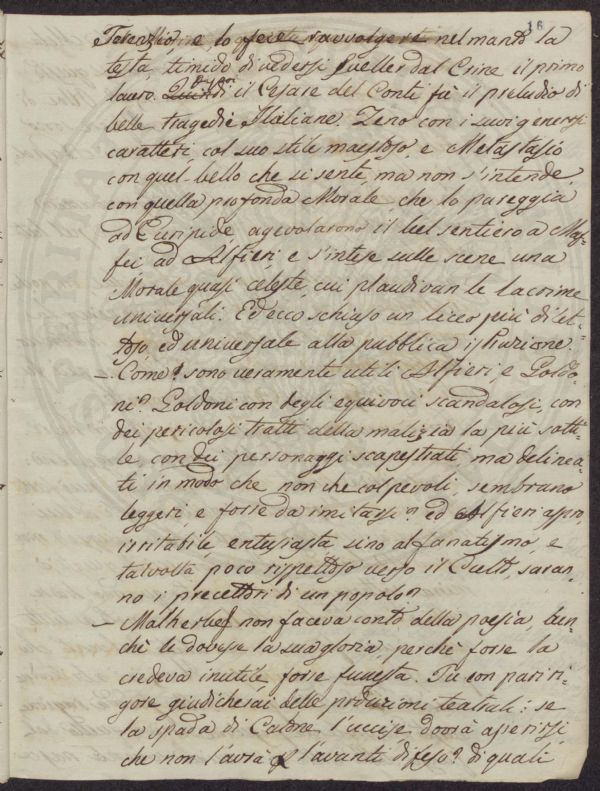 16
Terenzio, e lo fece ravvolgere nel manto la
testa, timido di vedersi sveller dal Crine il primo
lauro. Di poi il Cesare del Conti fù il preludio di
belle tragedie Italiane. Zeno con i suoi generosi
caratteri, col suo stile maestoso, e Metastasio
con quel bello che si sente, ma non s'intende,
con quella profonda Morale, che lo pareggia
ad Euripide agevolarono il bel sentiero a Maf-
fei ad Alfieri, e s'intese sulle scene una
Morale quasi celeste, cui plaudivan le lacrime
universali: Ed ecco schiuso un liceo più dilet-
toso, ed universale alla pubblica istruzione.
– Come? sono veramente utili Alfieri, e Goldo-
ni? Goldoni con degli equivoci scandalosi, con
dei pericolosi tratti della malizia la più sotti-
le, con dei personaggi scapestrati, ma delinea-
ti in modo che non che colpevoli, sembrano
leggeri, e forse da imitarsi? ed Alfieri aspro,
irritabile, entusiasta sino al fanatismo, e
talvolta poco rispettoso verso il Culto, saran-
no i precettori di un popolo?
– Malherbe non faceva conto della poesia, ben-
chè le dovesse la sua gloria, perchè forse la
credeva inutile, forse funesta. Tu con pari ri-
gore giudicherai delle produzioni teatrali: se
la spada di Catone l'uccise dovrà asserirsi
che non l'avrà l'avanti difeso? di quali